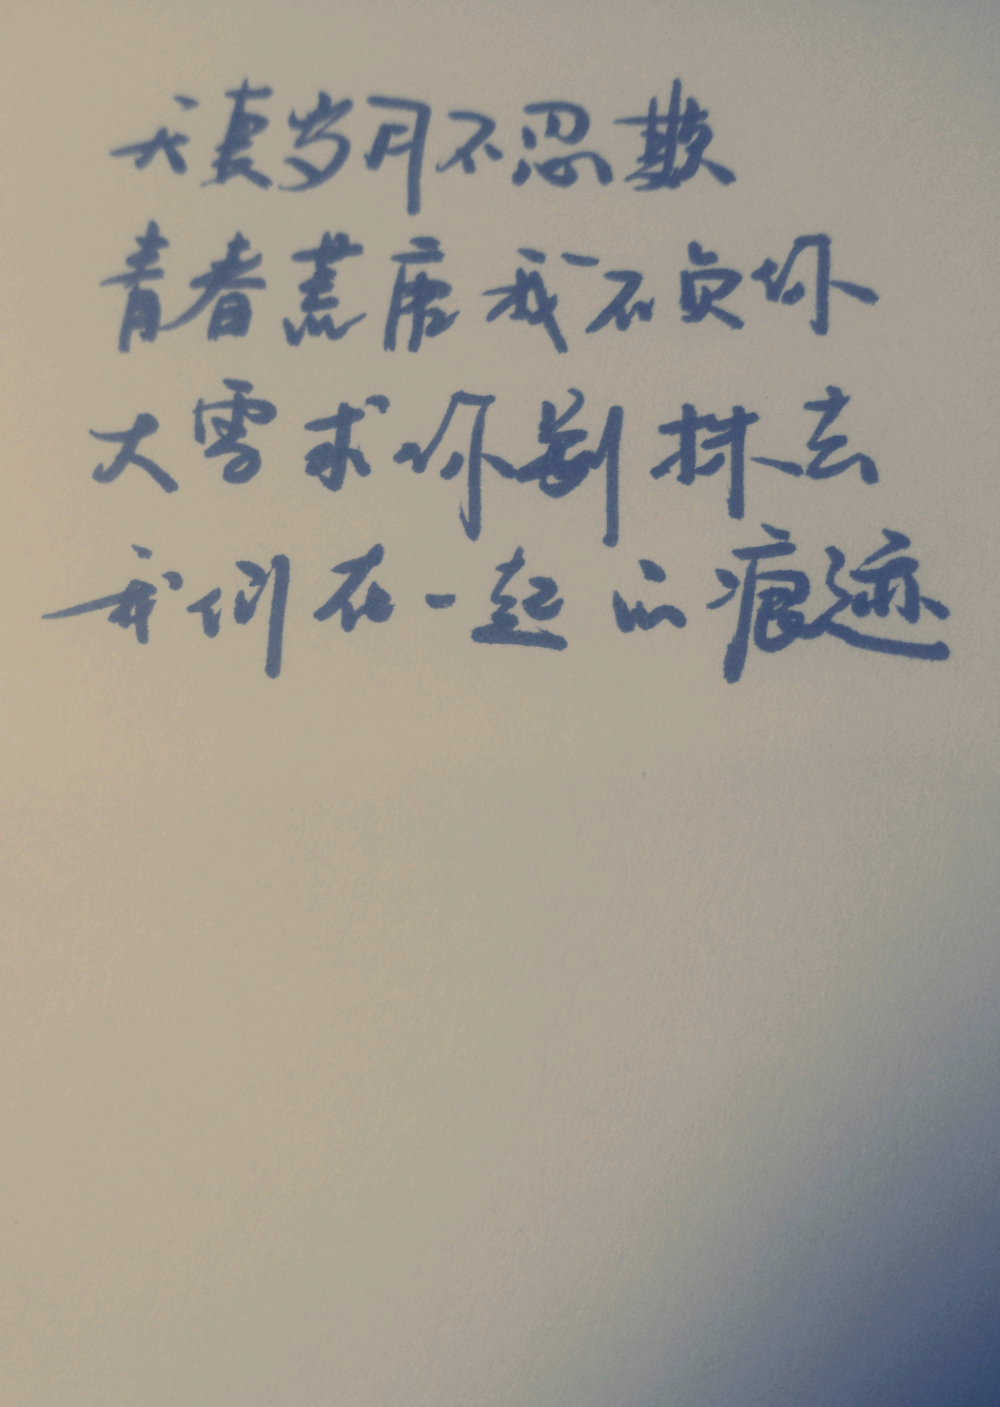 天真岁月不忍欺
青春荒唐我不负你
大雪求你别抹去
我们在一起的痕迹